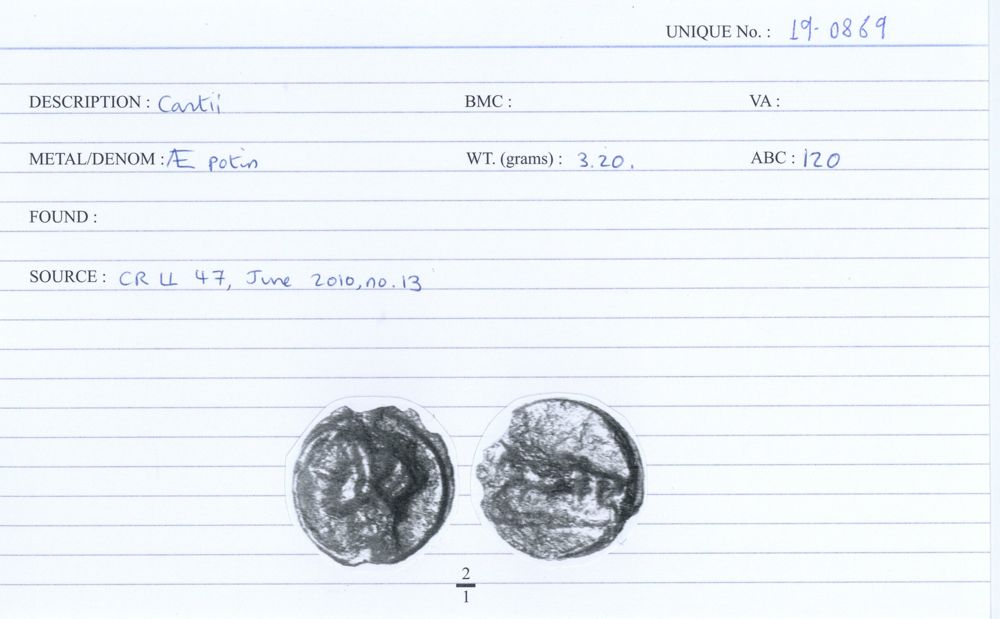 UNIQUE No. : 19-0869
DESCRIPTION : Cantii BMC : VA :
METAL/DENOM : Æ potin WT. (grams) : 3.20. ABC : 120
FOUND :
SOURCE : CR LL 47, June 2010, no. 13
2
1